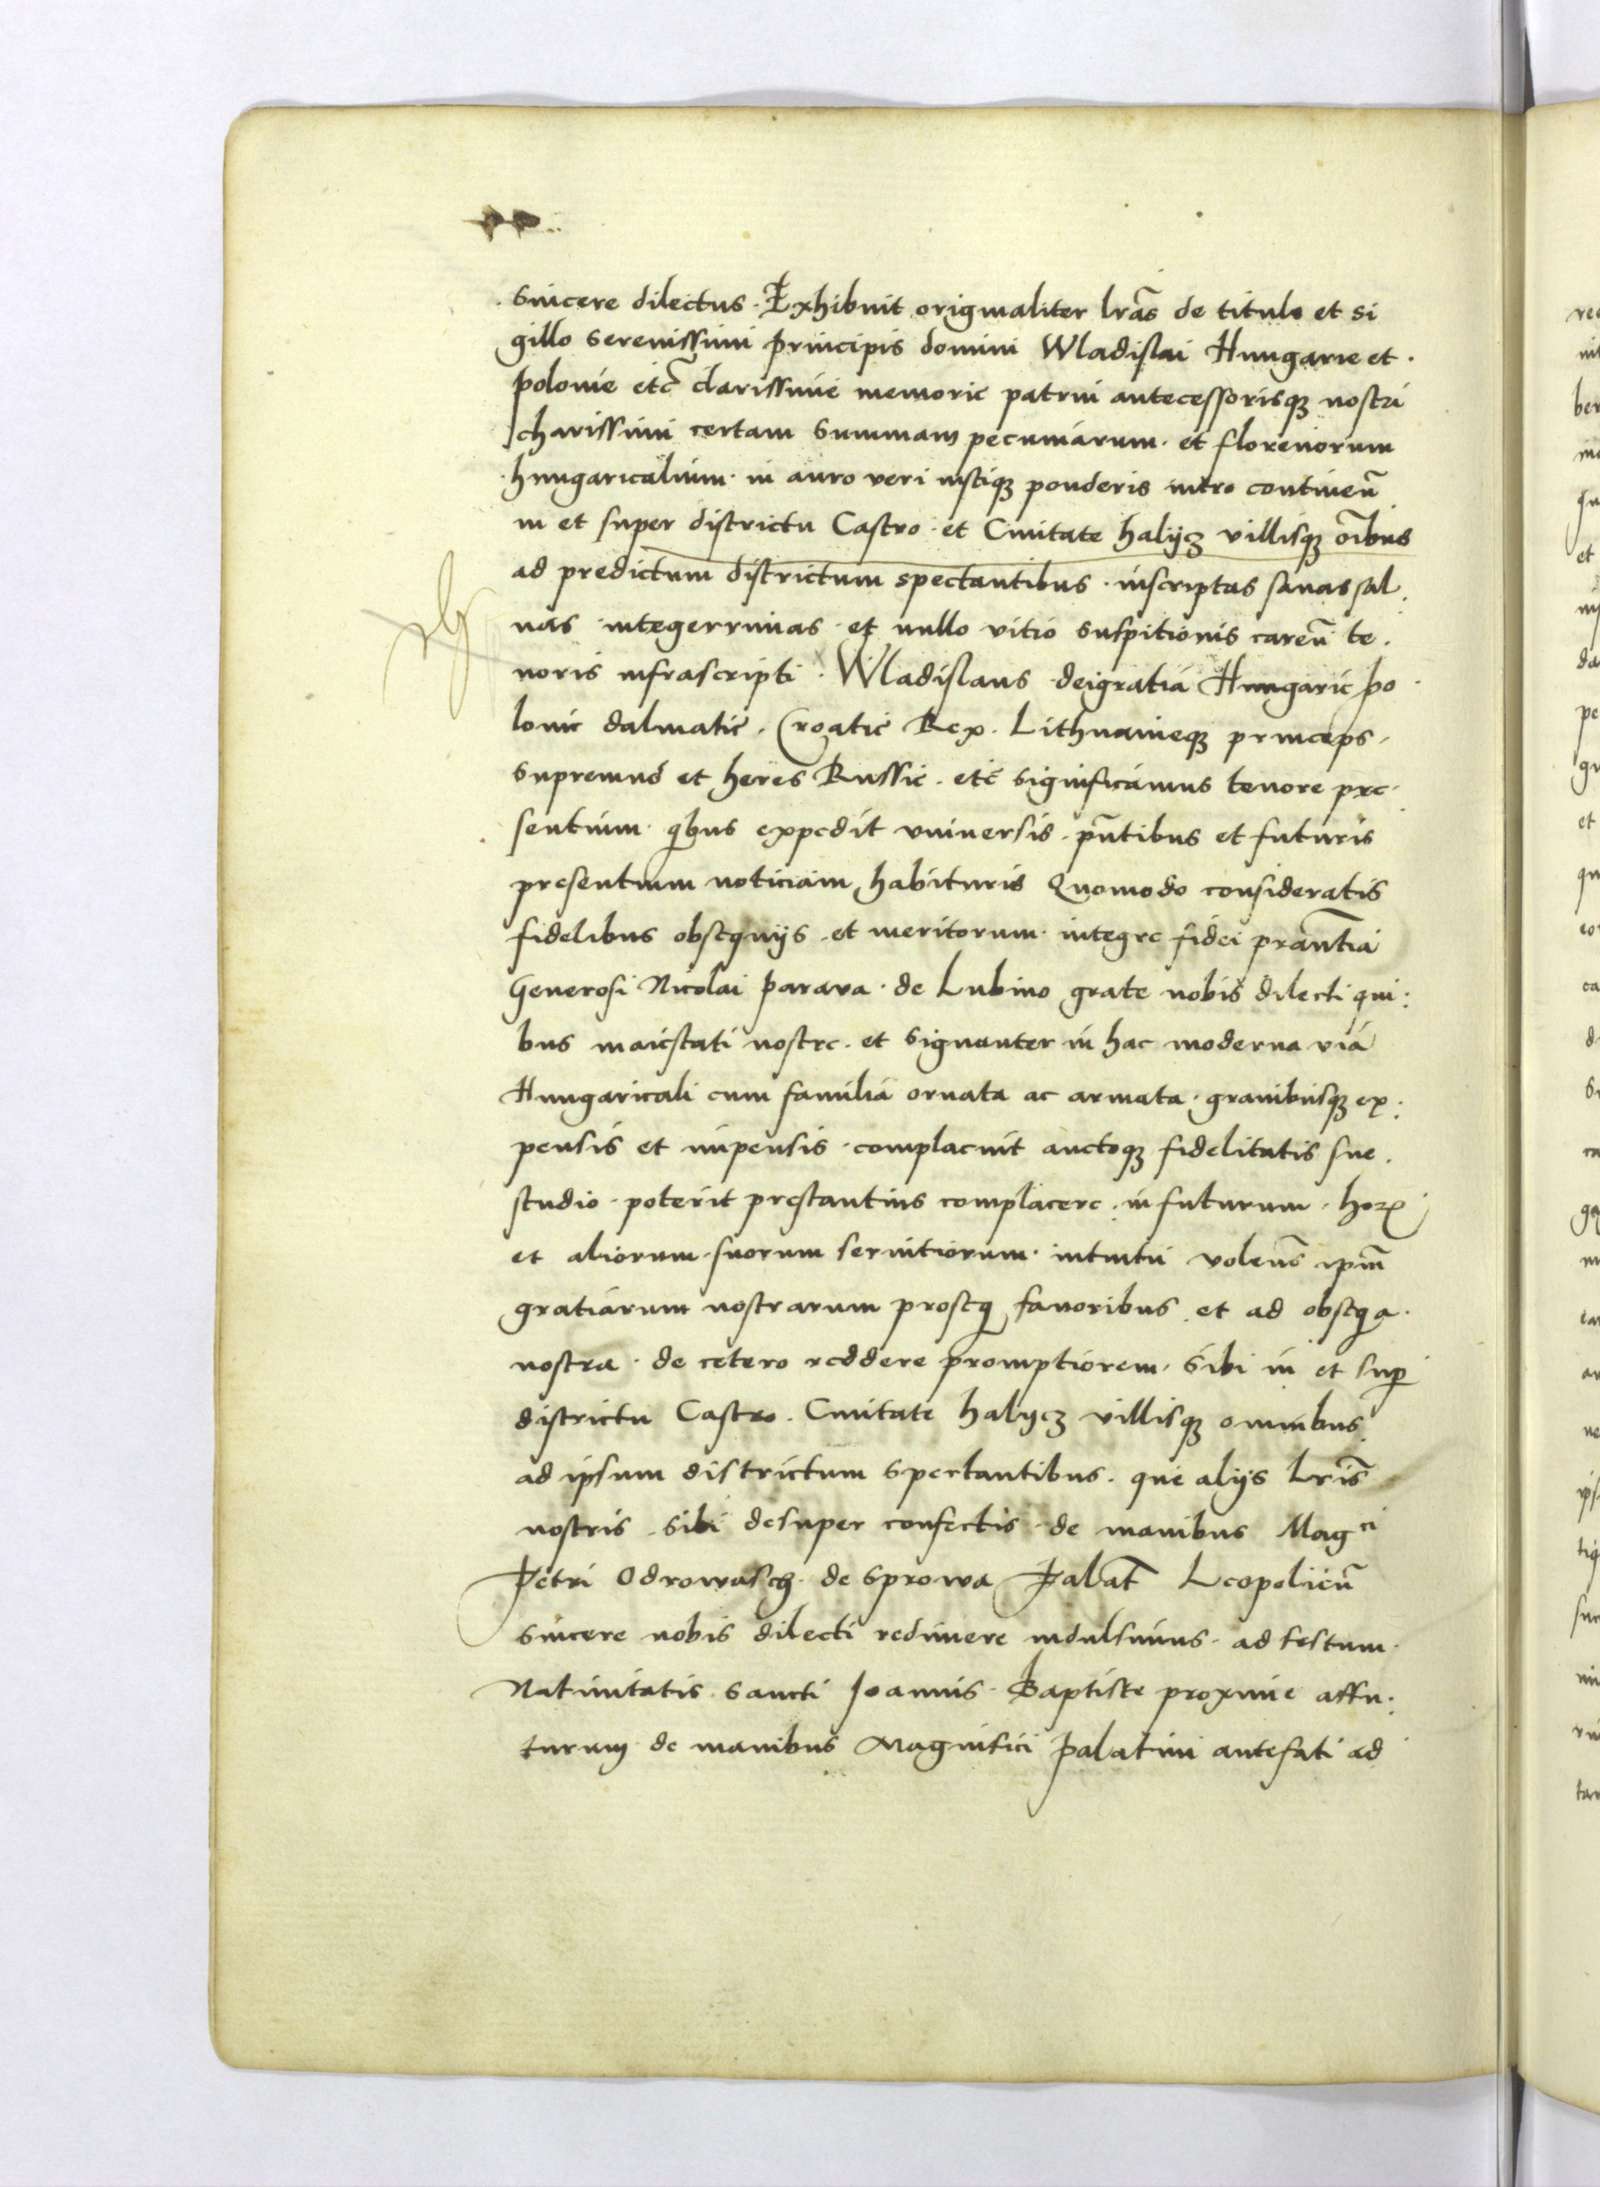 sincere dilectus. Exhibuit originaliter lrãs de titulo et si
gillo serenissimi principis domini Wladislai Hungarie et.
polonie etc̃ clarissime memorie patrui antecessorisqꝫ nostri
charissimi certam summam pecuniarum. et florenorum
hungaricalium. in auro veri iustiqꝫ ponderis intro continen̄
in et super districtu Castro. et Ciuitate halijcz villisqꝫ oĩbus
ad predictum districtum spectantibus. inscriptas sanas sal.
uas integerrimas et nullo vitio suspitionis caren̄ te.
noris infrascripti. Wladislaus deigratia Hungarie po
lonie dalmatie. Croatie Rex. Lithuanieqꝫ princeps.
supremus et heres Russie. etc̃ significamus tenore pre.
sentium. qbus expedit vniuersis. pñtibus et futuris
presentium noticiam habituris Quomodo consideratis
fidelibus obsequijs. et meritorum. integre fidei prãntia
Generosi Nicolai parava. de Lubino grate nobis dilecti qui:
bus maiestati nostre. et signanter in hac moderna via
Hungaricali cum familia ornata ac armata. grauibusqꝫ ex:
pensis et impensis. complacuit auctoqꝫ fidelitatis sue.
studio. poterit prestantius complacere. in futurum. hoꝝ
et aliorum suorum seruitiorum. intuitu volens̄ ip̄m
gratiarum nostrarum proseq fauoribus. et ad obseqa.
nostra. de cetero reddere promptiorem. sibi in et sup
districtu Castro. Ciuitate halycz villisqꝫ omnibus
ad ipsum districtum spectantibus. que alijs Lrĩs
nostris. sibi desuper confectis. de manibus Magci
Petri Odrowasch. de sprowa Palat̃ Leopolien̄
sincere nobis dilecti redimere indulsimus. ad festum.
Natiuitatis. sancti Joannis. Baptiste proxime affu:
turum de manibus Magnifici palatini antefati ad